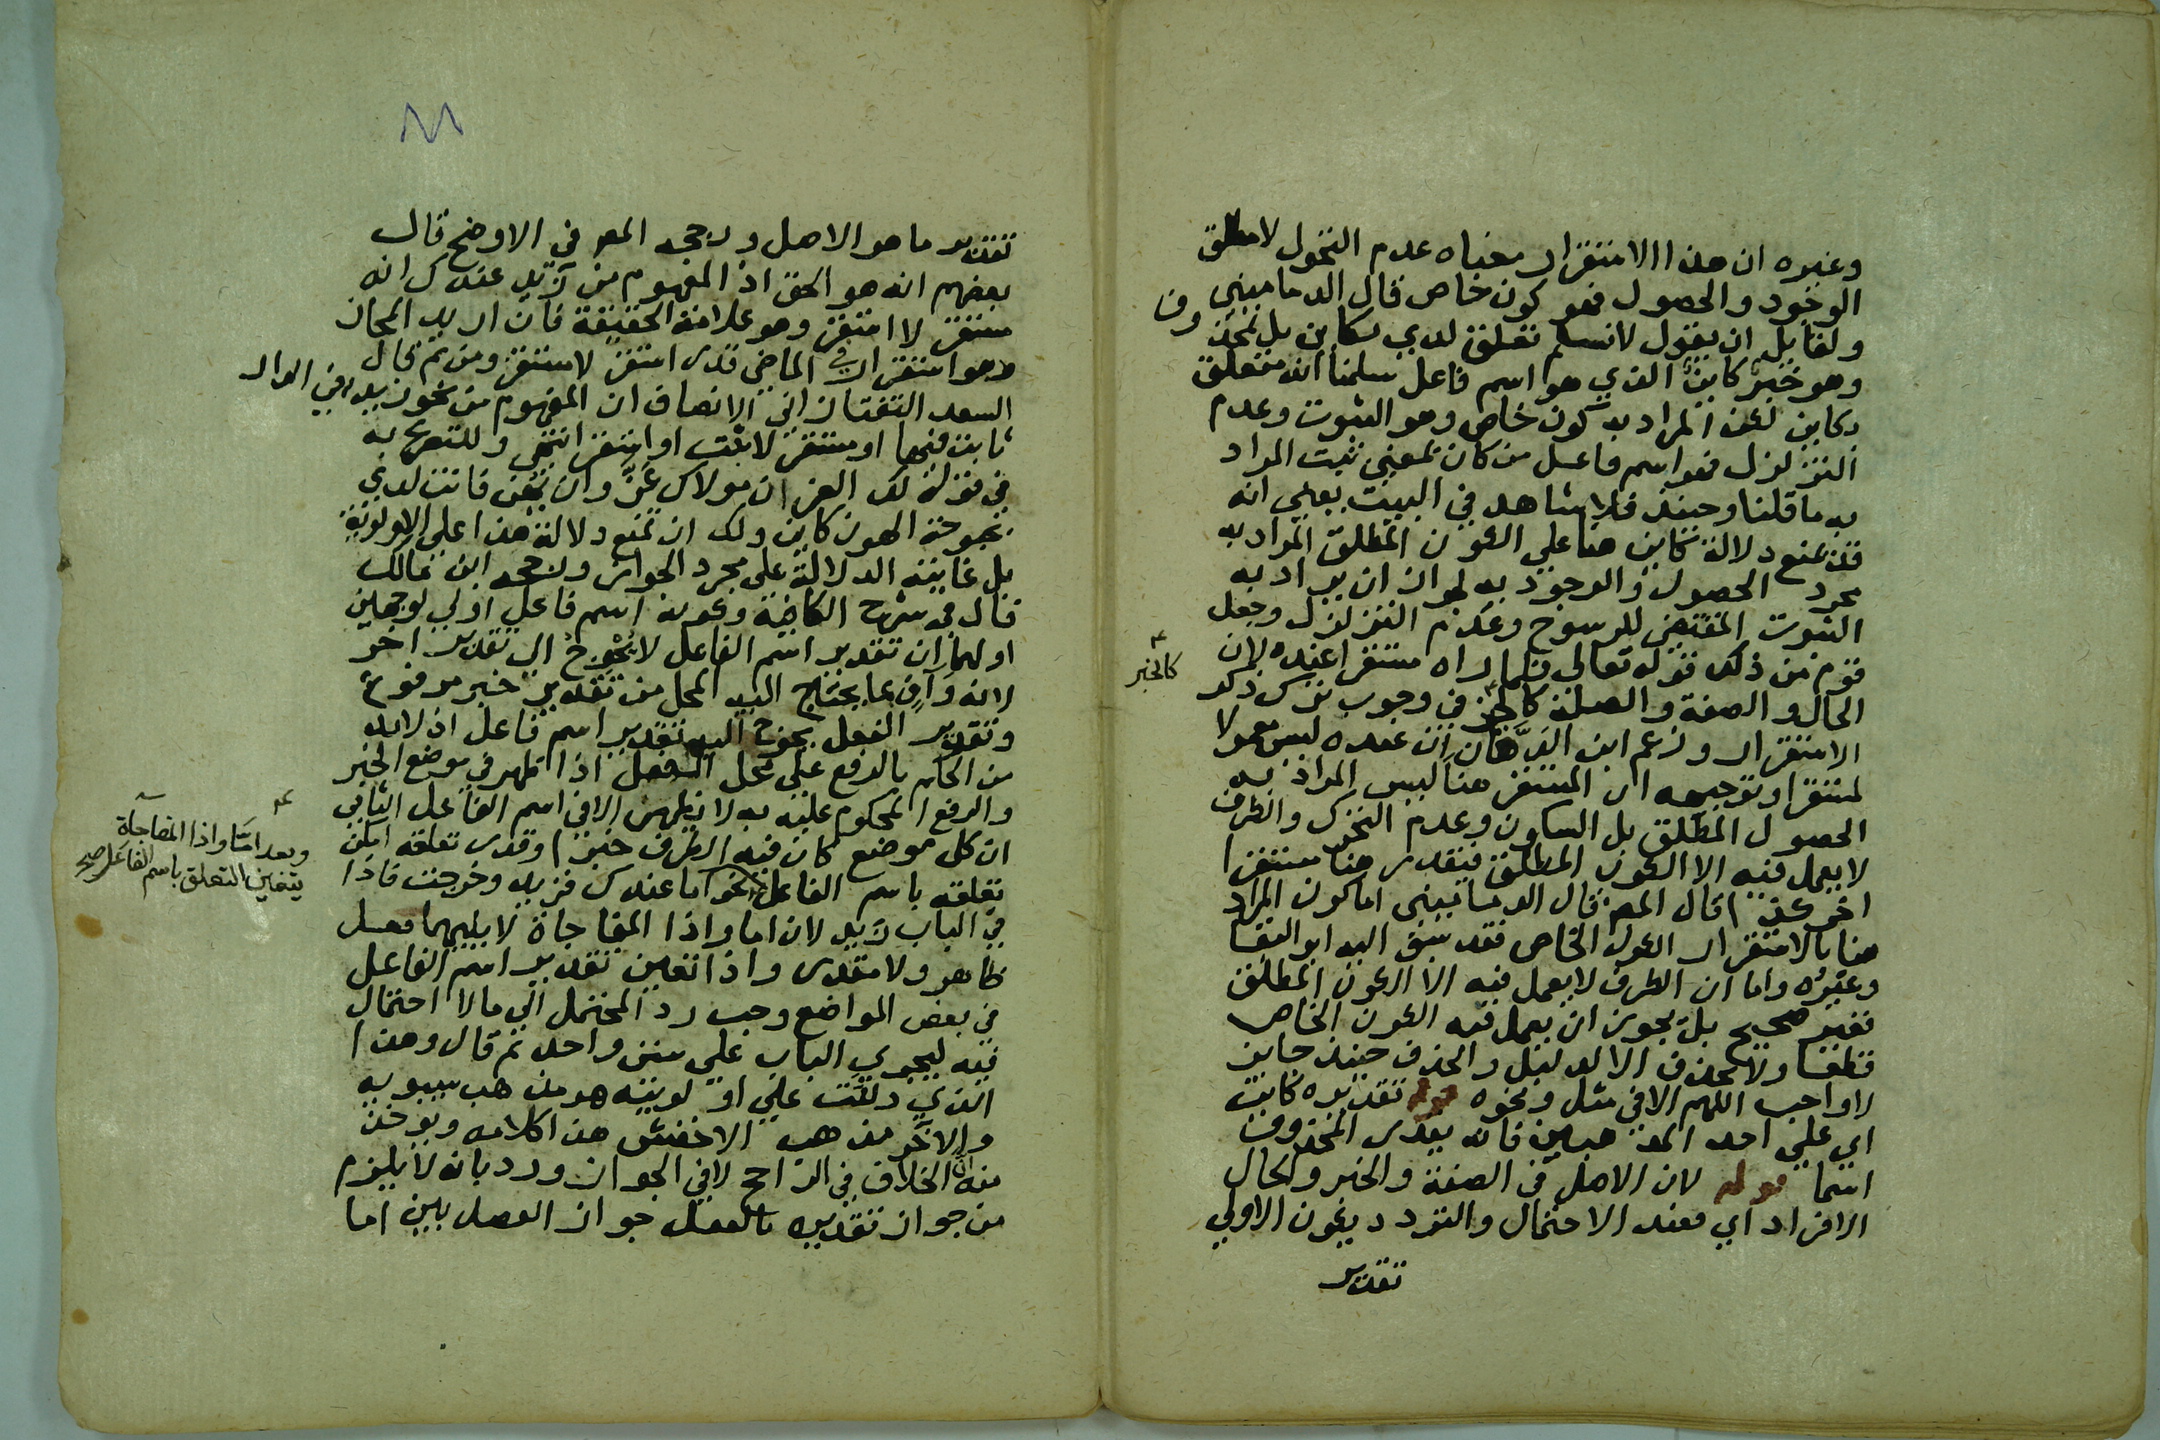 وغيره ان هذا الاستقرار معناه عدم التحول لا مطلق
الوجود والحصول فهو كون خاص قال الدماميني
ولقايل ان يقول لا نسلم تعلق لدي بكاين بل بمحذوف
وهو خبر كاين الذي هو اسم فاعل سلمنا انه متعلق
بكاين لكن المراد به كون خاص وهو الثبوت وعدم
التزلزل فهو اسم فاعل من كان بمعني ثبت المراد
به ما قلنا وحينئذ فلا شاهد في البيت يعني انه
قد تمنع دلالة كاين هنا علي الكون المطلق المراد به
مجرد الحصول والوجود به لجواز ان يراد به
الثبوت المقتضي للرسوخ وعدم التزلزل وجعل
قوم من ذلك قوله تعالى فلما راه مستقرا عنده لان
الحال والصفة والصلة كالخبر في وجوب ترك ذكر
كالخبر
الاستقرار وزعم ابن الدهان ان عنده ليس معمولا
لمستقرا وتوجيهه ان المستقر هنا ليس المراد به
الحصول المطلق بل السكون وعدم التحرك والظرف
لا يعمل فيه الا الكون المطلق فيقدر هنا مستقرا
اخر قال المص قال الدماميني اما كون المراد
هنا بالاستقرار الكون الخاص فقد سبق اليه ابو البقا
وغيره واما ان الظرف لا يعمل فيه الا الكون المطلق
فغير صحيح بل يجوز ان يعمل فيه الكون الخاص
قطعا ولا يحذف الا لدليل والحذف حينئذ جايز
لا واجب اللهم الا في مثل ونحوه قوله تقديره كاين
اي علي احد المذهبين فانه يقدر المحذوف
اسما قوله لان الاصل في الصفة والخبر والحال
الافراد اي فعند الاحتمال والتردد يكون الاولي
تقدير
تقدير ما هو الاصل ورجحه المص في الاوضح قال
بعضهم انه هو الحق اذ المفهوم من زيد عندك انه
مستقر لا استقر وهو علامة الحقيقة فان اريد المجاز
وهو استقرار في الماضي قدر استقر لا مستقر ومن ثم قال
السعد التفتازاني الانصاف ان المفهوم من نحو زيد في الدار
ثابت فيها او مستقر لا ثبت او استقر انتهي وللتصريح به
في قوله لك العز ان مولاك عز وان يهن فانت لدي
بحبوحة الهون كاين ولك ان تمنع دلالة هذا علي الاولوية
بل غايته الدلالة على مجرد الجواز ورجحه ابن مالك
قال في شرح الكافية وكونه اسم فاعل اولي لوجهين
اولهما ان تقدير اسم الفاعل لا يحوج الى تقدير اخر
لانه واف بما يحتاج اليه المحل من تقدير خبر مرفوع
وتقدير الفعل يحوج الي تقدير اسم فاعل اذ لا بد
من الحكم بالرفع على محل الفعل اذا ظهر في موضع الخبر
والرفع المحكوم عليه به لا يظهر الا في اسم الفاعل الثاني
ان كل موضع كان فيه الظرف خبرا وقدر تعلقه امكن
تعلقه باسم الفاعل نحو اما عندك فزيد وخرجت فاذا
وبعد اما واذا المفاجاة
يتعين التعلق باسم الفاعل صح
في الباب زيد لان اما واذا المفاجاة لا يليهما فعل
ظاهر ولا مقدر واذا تعين تقدير اسم الفاعل
في بعض المواضع وجب رد المحتمل الي ما لا احتمال
فيه ليجري الباب علي سنن واحد ثم قال وهذا
الذي دللت علي اولويته هو مذهب سيبويه
والاخر مذهب الاخفش هذا كلامه ويوخذ
منه ان الخلاف في الراجح لا في الجواز ورد بانه لا يلزم
من جواز تقديره بالفعل جواز الفصل بين اما